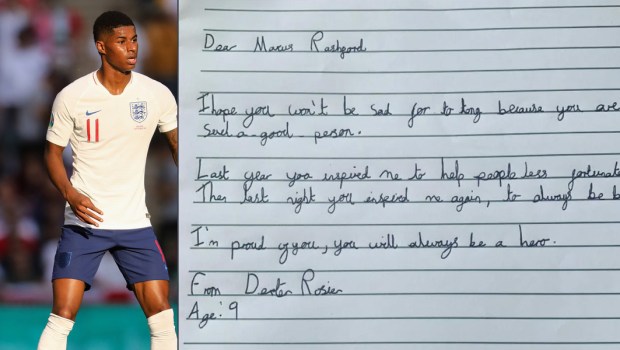 11
Dear Marcus Rashford
I hope you won't be sad for to long because you are
such a good person.
Last year you inspired me to help people less fortunate
Then last night you inspired me again, to always be b
I'm proud of you, you will always be a hero.
From Dexter Rosier
Age: 9